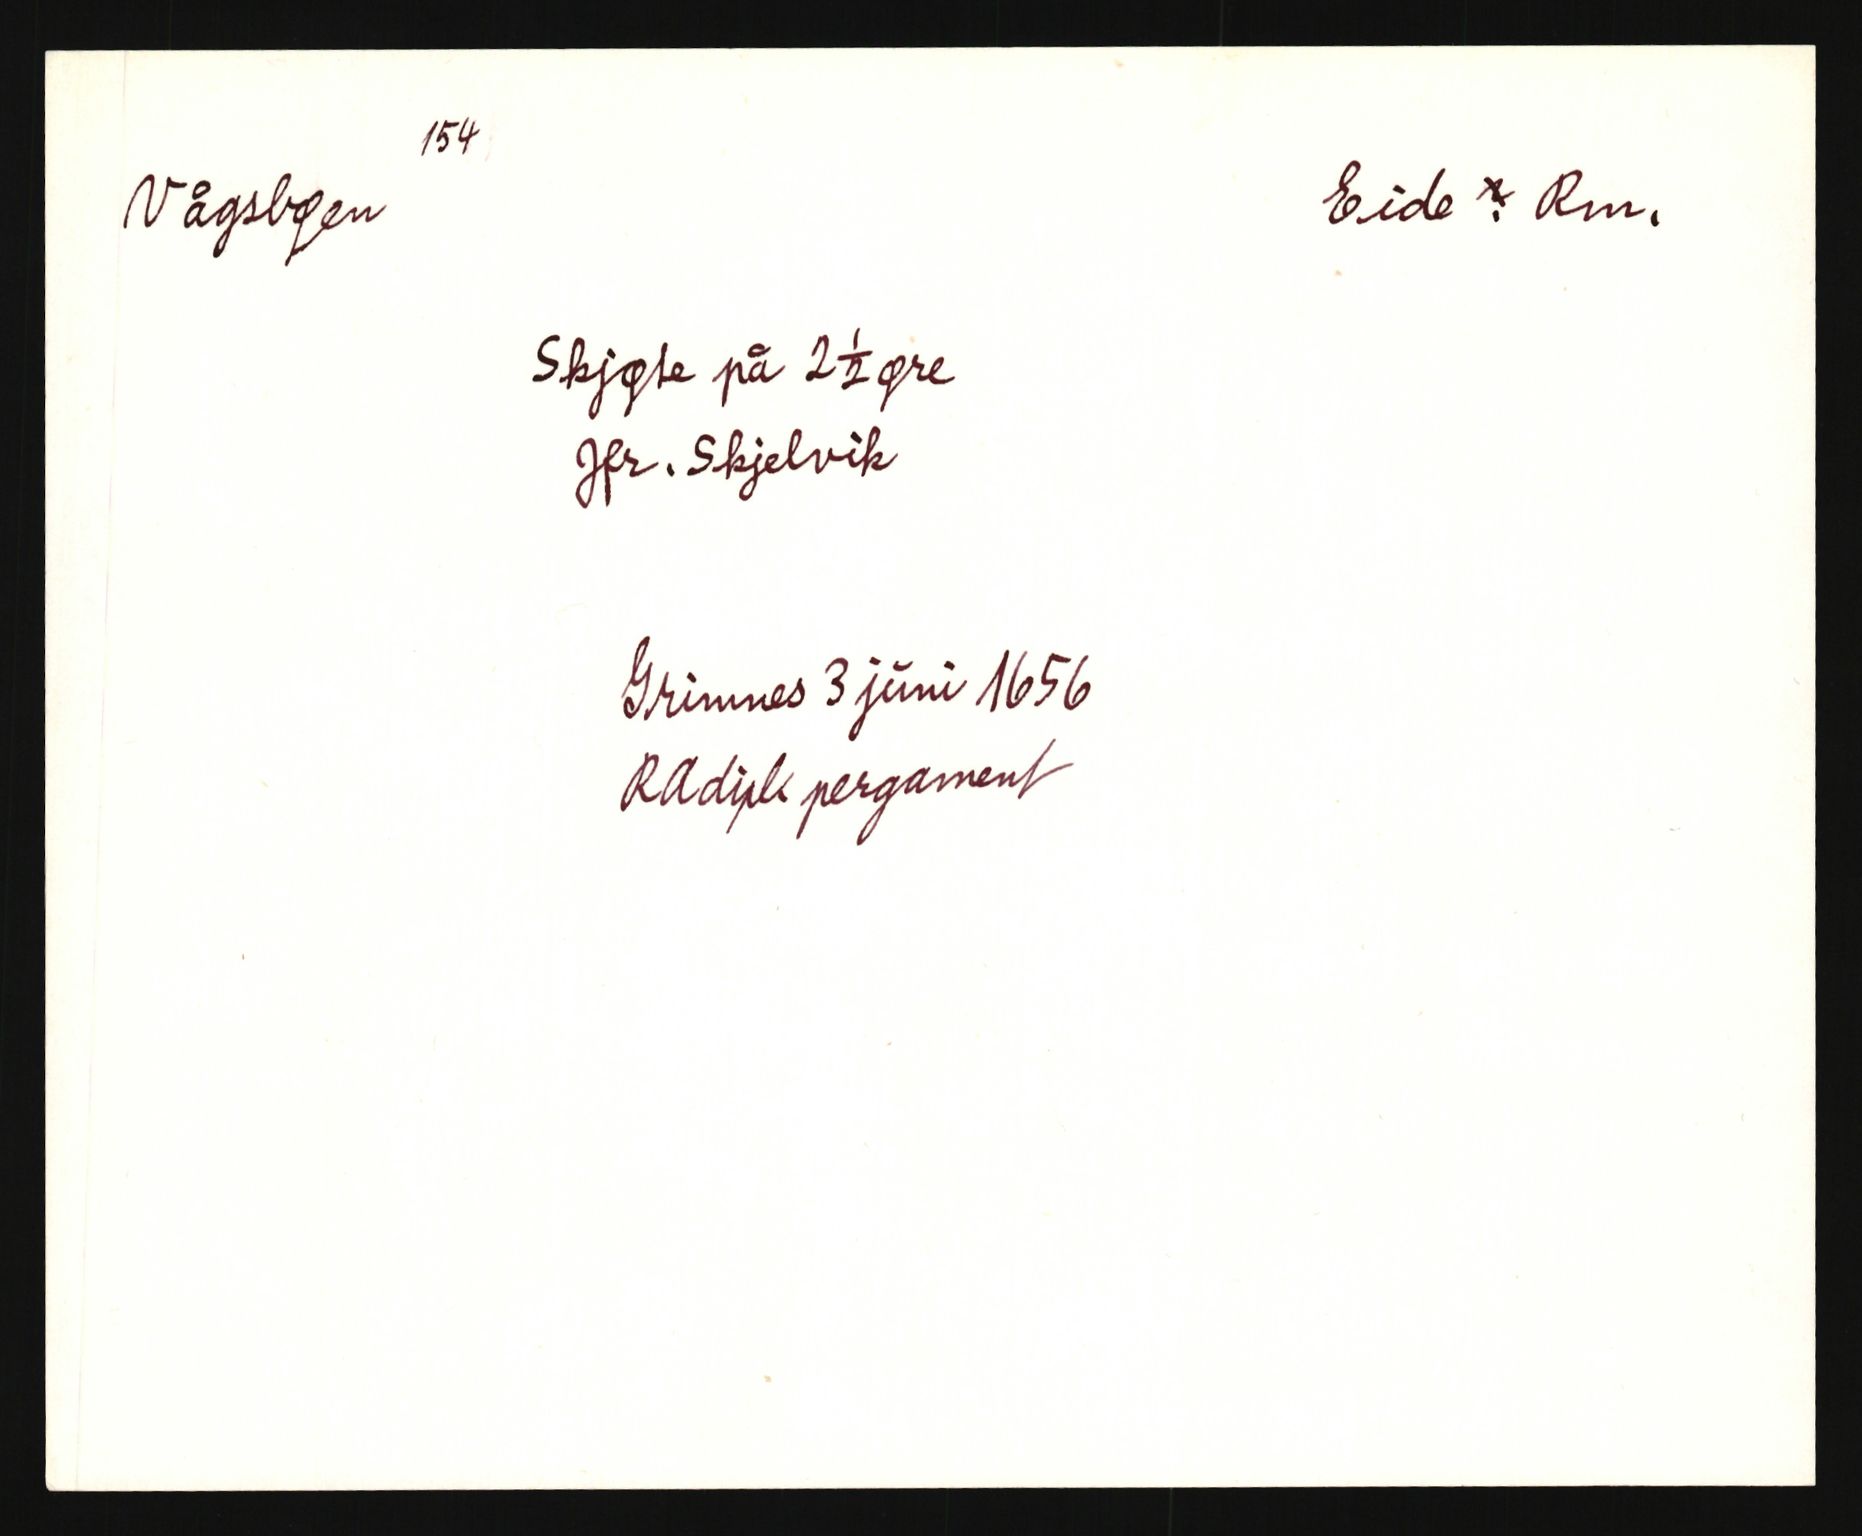 154
Vågsbøen Eide Rm.
Skjøte på 2½ øre
Jfr. Skjelvik
Grimnes 3 juni 1656
RAdipl pergament